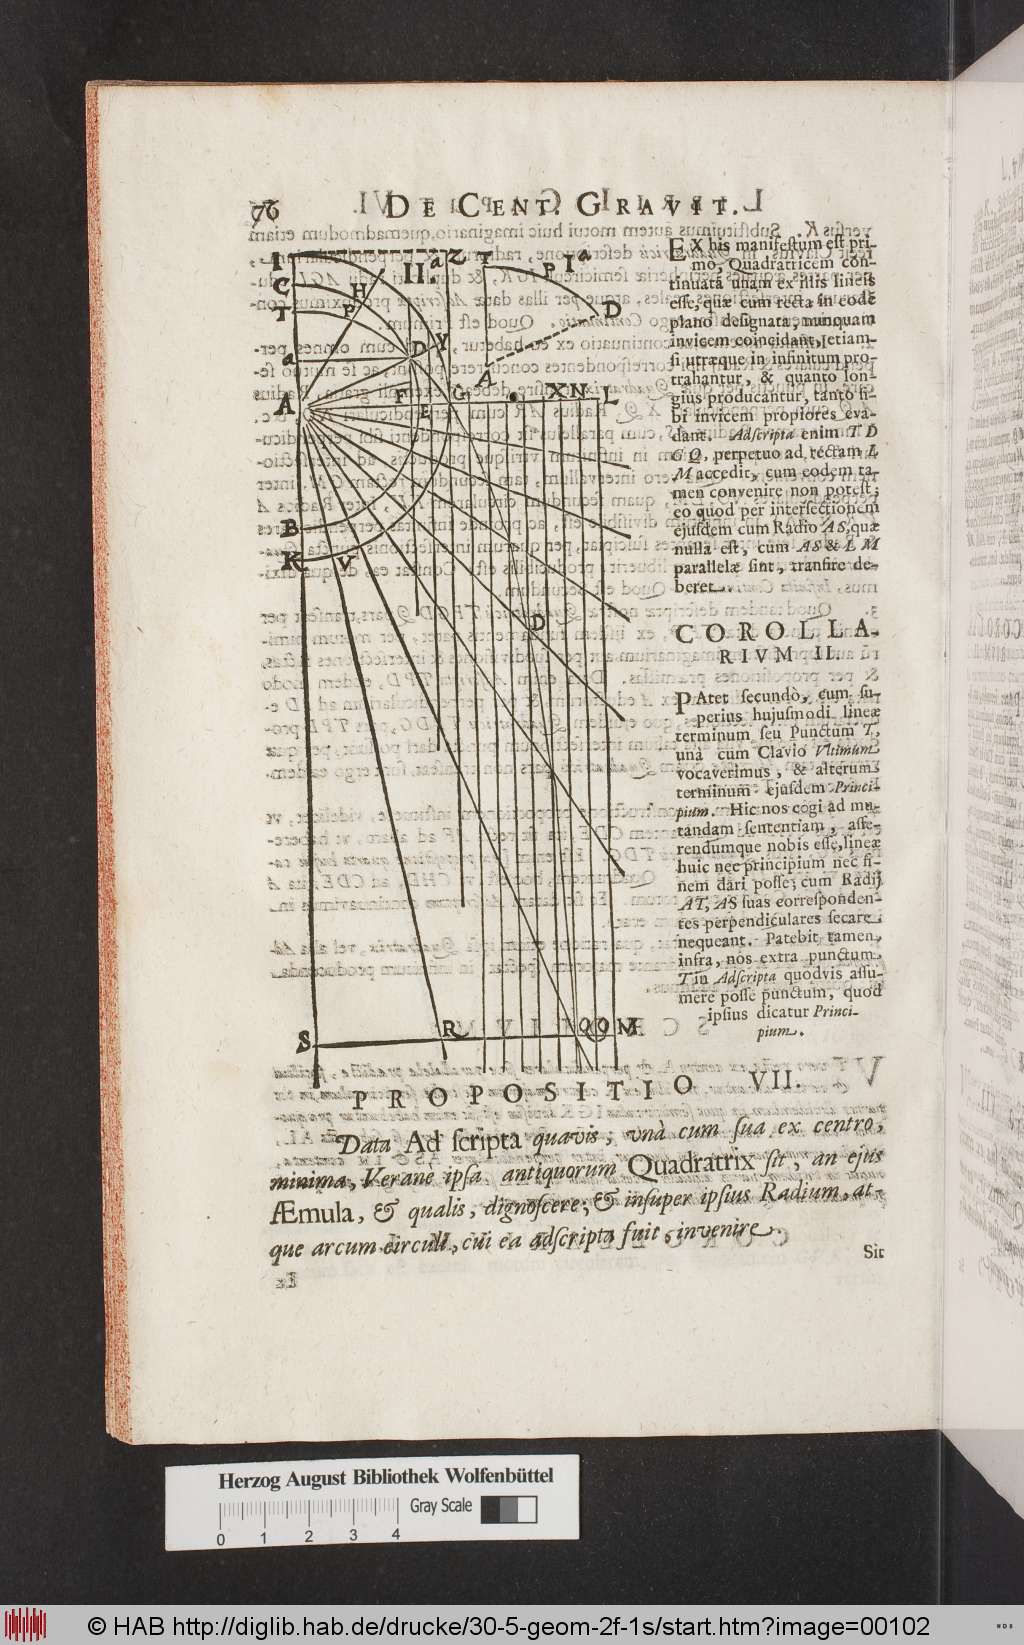 76 DE CENT. GRAVIT.
EX his manifestum est pri-
mo, Quadratricem con-
tinuatâ unam ex iliis lineis
esse, quæ cum recta in eodē
plano designata, nunquam
invicem coincidant, etiam-
si utræque in infinitum pro-
trahantur, & quanto lon-
gius producantur, tanto si-
bi invicem propiores eva-
dant. Adscripta enim T D
G Q, perpetuo ad rectam L
M accedit, cum eodem ta-
men convenire non potest;
eo quod per intersectionem
ejusdem cum Radio AS, quæ
nulla est, cum AS & L M
parallelæ sint, transire de-
beret.
COROLLA-
RIVM II.
PAtet secundò, cum su-
perius hujusmodi lineæ
terminum seu Punctum T,
unà cum Clavio Vltimum
vocaverimus, & alterum
terminum ejusdem Princi-
pium. Hic nos cogi ad mu-
tandam sententiam, asse-
rendumque nobis esse, lineæ
huic nec principium nec fi-
nem dari posse; cum Radij
AT, AS suas correspondent-
tes perpendiculares secare
nequeant. Patebit tamen
infra, nos extra punctum
T in Adscripta quodvis assu-
mere posse punctum, quod
ipsius dicatur Princi-
pium.
I
C
T
a
A
B
K
V
H
P
II.
a
Z
D
Y
F
E
G
T
P
I
a
D
A
X N L
D
S
R
Q Q M
PROPOSITIO VII.
Data Ad scripta quavis; unà cum sua ex centro,
minima, Verane ipsa antiquorum Quadratrix sit, an ejus
Æmula, & qualis, dignoscere; & insuper ipsius Radium, at-
que arcum circuli, cui ea adscripta fuit, invenire.
Sit
Herzog August Bibliothek Wolfenbüttel
Gray Scale
0 1 2 3 4
© HAB http://diglib.hab.de/drucke/30-5-geom-2f-1s/start.htm?image=00102